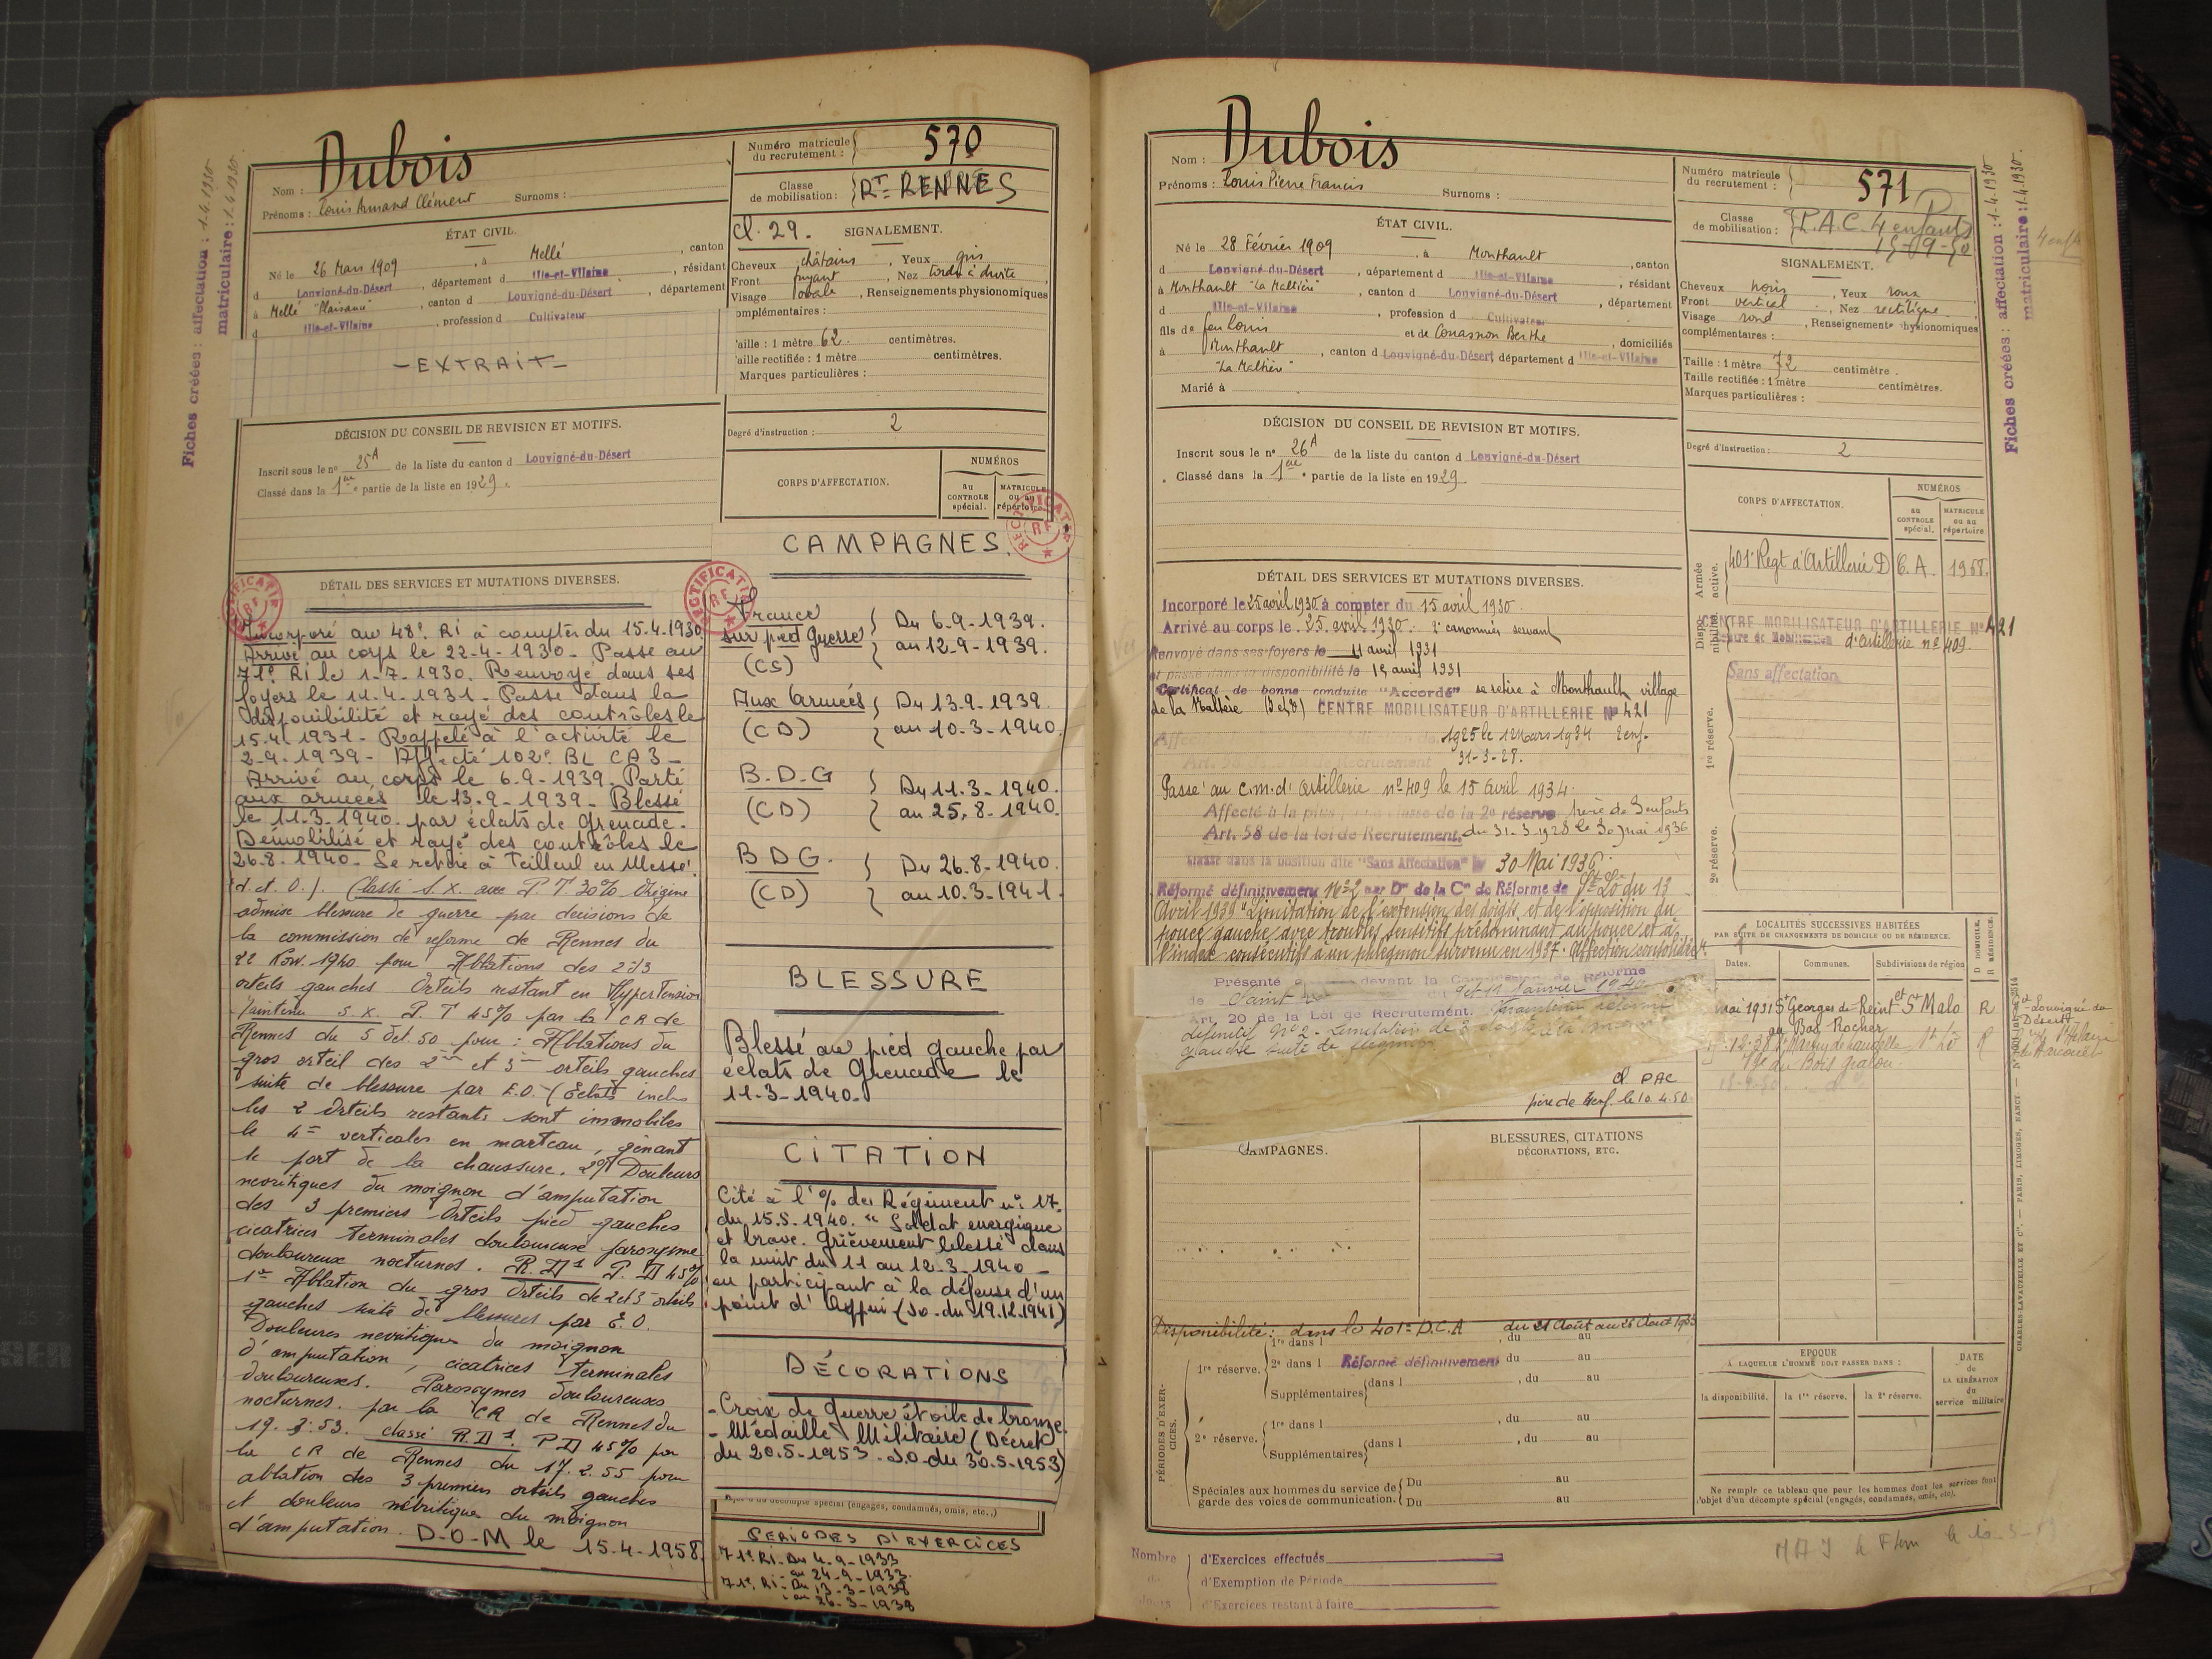 Fiches créées : affectation : 1.4.1930
matriculaire : 1.4.1930
Nom : Dubois
Prénoms : Louis Armand Clément Surnoms :
Numéro matricule du recrutement : 570
Classe de mobilisation : RT RENNES
cl. 29.
ÉTAT CIVIL.
Né le 26 Mars 1909, à Mellé, canton
d Louvigné-du-Désert, département d Ille-et-Vilaine, résidant
à Mellé "Plaisance", canton d Louvigné-du-Désert, département
d Ille-et-Vilaine, profession d Cultivateur
- EXTRAIT -
SIGNALEMENT.
Cheveux châtains, Yeux gris
Front fuyant, Nez tordu à droite
Visage ovale, Renseignements physionomiques
complémentaires :
Taille : 1 mètre 62 centimètres.
Taille rectifiée : 1 mètre centimètres.
Marques particulières :
DÉCISION DU CONSEIL DE REVISION ET MOTIFS.
Inscrit sous le nº 25A de la liste du canton d Louvigné-du-Désert
Classé dans la 1ère partie de la liste en 1929.
Degré d'instruction : 2
CORPS D'AFFECTATION.
NUMÉROS
au CONTROLE spécial.
MATRICULE ou au répertoire
RECTIFICATIF RF
DÉTAIL DES SERVICES ET MUTATIONS DIVERSES.
Incorporé au 48e RI à compter du 15.4.1930
Arrivé au corps le 22-4-1930 - Passé au
71e RI le 1-7-1930. Renvoyé dans ses
foyers le 11.4.1931 - Passé dans la
disponibilité et rayé des contrôles le
15.4.1931 - Rappelé à l'activité le
2-9-1939 - Affecté 102e BL CA3 -
Arrivé au corps le 6.9-1939. Parti
aux armées le 13.9-1939 - Blessé
le 11.3-1940. par éclats de Grenade.
Démobilisé et rayé des contrôles le
26.8-1940 - Se retire à Teilleul en Messé
(d. et. O.). Classé S.X. avec P.T 30% Origine
admise blessure de guerre par decisions de
la commission de reforme de Rennes du
22 Nov. 1940 pour Ablations des 2 & 3
orteils gauches Orteils restant en Hypertension
Maintenu S.X. P.T 45% par la CR de
Rennes du 5 Oct. 50 pour : Ablations du
gros orteil des 2me et 3me orteils gauches
suite de blessure par E.O. (Eclats inclus
les 2 Orteils restants sont immobiles
le 4e verticales en marteau, gênant
le port de la chaussure. 2º/ Douleurs
nevritiques du moignon d'amputation
des 3 premiers Orteils pied gauches
cicatrices terminales douloureuse paroxysme
douloureux nocturnes. R.D1 P.D 45%
1º Ablation du gros Orteils de 2 et 3 orteils
gauches suite de blessures par E.O.
Douleurs nevritique du moignon
d'amputation, cicatrices terminales
douloureuses. Paroxysmes douloureuses
nocturnes. par la CR de Rennes du
19.3.53. classé R.D1. PD 45% par
la CR de Rennes du 17.2.55 pour
ablation des 3 premiers orteils gauches
et douleurs névritique du moignon
d'amputation. D-O-M le 15-4-1958.
CAMPAGNES.
France sur pied guerre (CS) Du 6.9-1939. au 12-9-1939.
Aux Armées (CD) Du 13.9-1939. au 10.3-1940.
B.D.G (CD) Du 11.3-1940. au 25.8-1940.
B D G. (CD) Du 26.8-1940. au 10.3-1941.
BLESSURE
Blessé au pied gauche par
éclats de Grenade le
11-3-1940.
CITATION
Cité à l'% du Régiment nº 17.
du 15.5.1940. "Soldat energique
et brave. Grièvement blessé dans
la nuit du 11 au 12-3-1940 -
en participant à la défense d'un
point d'Appui (Jo. du 19.12.1941)
DÉCORATIONS
- Croix de Guerre étoile de bronze.
- Médaille Militaire (Décret
du 20.5-1953. J.O. du 30.5-1953)
objet d'un décompte spécial (engagés, condamnés, omis, etc.,)
PERIODES D'EXERCICES
71e RI - Du 4.9-1933
- au 24-9-1933.
71e RI - Du 13-3-1938
- au 26-3-1938
Nom : Dubois
Prénoms : Louis Pierre Francis Surnoms :
Numéro matricule du recrutement : 571
Classe de mobilisation : P.A.C. 4 enfants
15-09-50
Fiches créées : affectation : 1.4.1930
matriculaire : 1.4.1930.
4 enfts
ÉTAT CIVIL.
Né le 28 Février 1909, à Monthault, canton
d Louvigné-du-Désert, département d Ille-et-Vilaine, résidant
à Monthault "La Maltière", canton d Louvigné-du-Désert, département
d Ille-et-Vilaine, profession d Cultivateur
fils de feu Louis et de Couasnon Berthe, domiciliés
à Monthault, canton d Louvigné-du-Désert, département d Ille-et-Vilaine
"La Maltière"
Marié à
SIGNALEMENT.
Cheveux noirs, Yeux roux
Front vertical, Nez rectiligne
Visage rond, Renseignements physionomiques
complémentaires :
Taille : 1 mètre 72 centimètre.
Taille rectifiée : 1 mètre centimètres.
Marques particulières :
DÉCISION DU CONSEIL DE REVISION ET MOTIFS.
Inscrit sous le nº 26A de la liste du canton d Louvigné-du-Désert
Classé dans la 1ère partie de la liste en 1929.
Degré d'instruction : 2
CORPS D'AFFECTATION.
NUMÉROS
au CONTROLE spécial.
MATRICULE ou au répertoire.
Armée active.
401e Regt d'Artillerie D.C.A. 1968.
Disponibilité.
CENTRE MOBILISATEUR D'ARTILLERIE Nº 421
Centre de Mobilisation d'artillerie nº 409.
Sans affectation
1re réserve.
2e réserve.
DÉTAIL DES SERVICES ET MUTATIONS DIVERSES.
Incorporé le 25 avril 1930 à compter du 15 avril 1930.
Arrivé au corps le 25 avril 1930. 2e canonnier servant
Renvoyé dans ses foyers le 11 avril 1931
et passé dans la disponibilité le 15 avril 1931
Certificat de bonne conduite "Accordé" se retire à Monthault village
de la Maltère (I et V) CENTRE MOBILISATEUR D'ARTILLERIE Nº 421
1925 le 12 Mars 1934 2 enf.
Art. 58 de la loi de Recrutement 31-3-28.
Passé au c.m. d'Artillerie nº 409 le 15 Avril 1934.
Affecté à la plus classe de la 2e réserve père de 3 enfants
Art. 58 de la loi de Recrutement. du 31-3-1928 le 30 mai 1936
Classé dans la position dite "Sans Affectation" le 30 Mai 1936.
Réformé définitivement Nº 2 par Don de la Con de Réforme de St Lo du 13
Avril 1939 "Limitation de l'extension des doigts et de l'opposition du
pouce gauche avec troubles sensitifs prédominant au pouce et à
l'index consécutifs à un phlegmon survenu en 1937. Affection consolidée".
Présenté devant la Commission de Réforme
de Saint Janvier 1940
Art. 20 de la Loi de Recrutement. Maintenu réformé
définitif Nº 2 - Limitation de
gauche suite de flegmon
cl PAC
père de enf. le 10.4.50.
LOCALITÉS SUCCESSIVES HABITÉES
PAR SUITE DE CHANGEMENTS DE DOMICILE OU DE RÉSIDENCE.
Dates. Communes. Subdivisions de région D DOMICILE. R RÉSIDENCE.
Mai 1931 St Georges de Reint St Malo R
au Bas Rocher
CAMPAGNES.
BLESSURES, CITATIONS
DÉCORATIONS, ETC.
Disponibilité : dans le 401e D.C.A du 21 Août au 26 Août 1933
PÉRIODES D'EXERCICES.
1re réserve. 1re dans l , du au
2e dans l Réformé définitivement du au
Supplémentaires dans l , du au
2e réserve. 1re dans l , du au
Supplémentaires dans l , du au
Spéciales aux hommes du service de garde des voies de communication. Du au
Du au
EPOQUE
A LAQUELLE L'HOMME DOIT PASSER DANS :
la disponibilité. la 1re réserve. la 2e réserve.
DATE de LA LIBÉRATION du service militaire
Ne remplir ce tableau que pour les hommes dont les services font
l'objet d'un décompte spécial (engagés, condamnés, omis, etc).
CHARLES-LAVAUZELLE ET Cie. — PARIS, LIMOGES, NANCY.
Nombre d'Exercices effectués
d'Exemption de Période
d'Exercices restant à faire